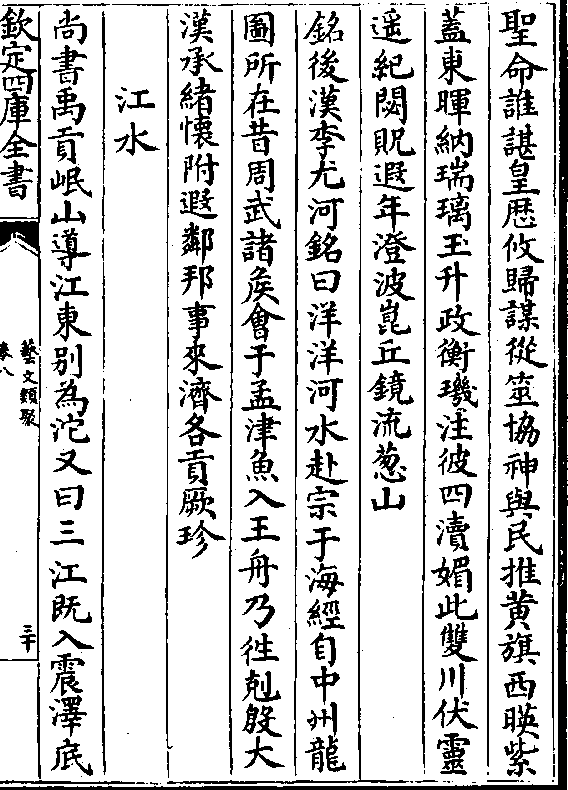 聖命誰諶皇歴攸歸謀從筮協神與民推黄旗西暎紫
蓋東暉納瑞璃玉升政衡璣注彼四瀆媚此雙川伏靈
遥紀閟貺遐年澄波崑丘鏡流葱山
銘後漢李尤河銘曰洋洋河水赴宗于海經自中州龍
圖所在昔周武諸矦會于孟津魚入王舟乃徃剋殷大
漢承緒懷附遐鄰邦事來濟各貢厥珍
江水
尚書禹貢岷山導江東别為沱又曰三江既入震澤底
欽定四庫全書
藝文類聚
卷八
三十